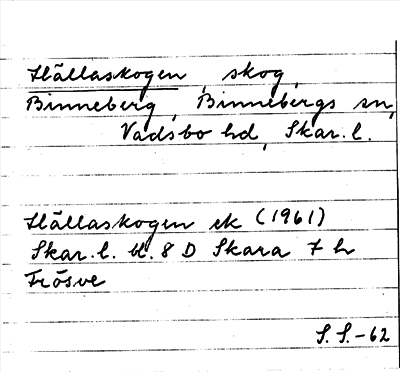 Hällaskogen, skog,
Binneberg, Binnebergs sn,
Vadsbo hd, Skar. l.
Hällaskogen ek (1961)
Skar. l. bl. 8 D Skara 7 h
Frösve
S. S. -62